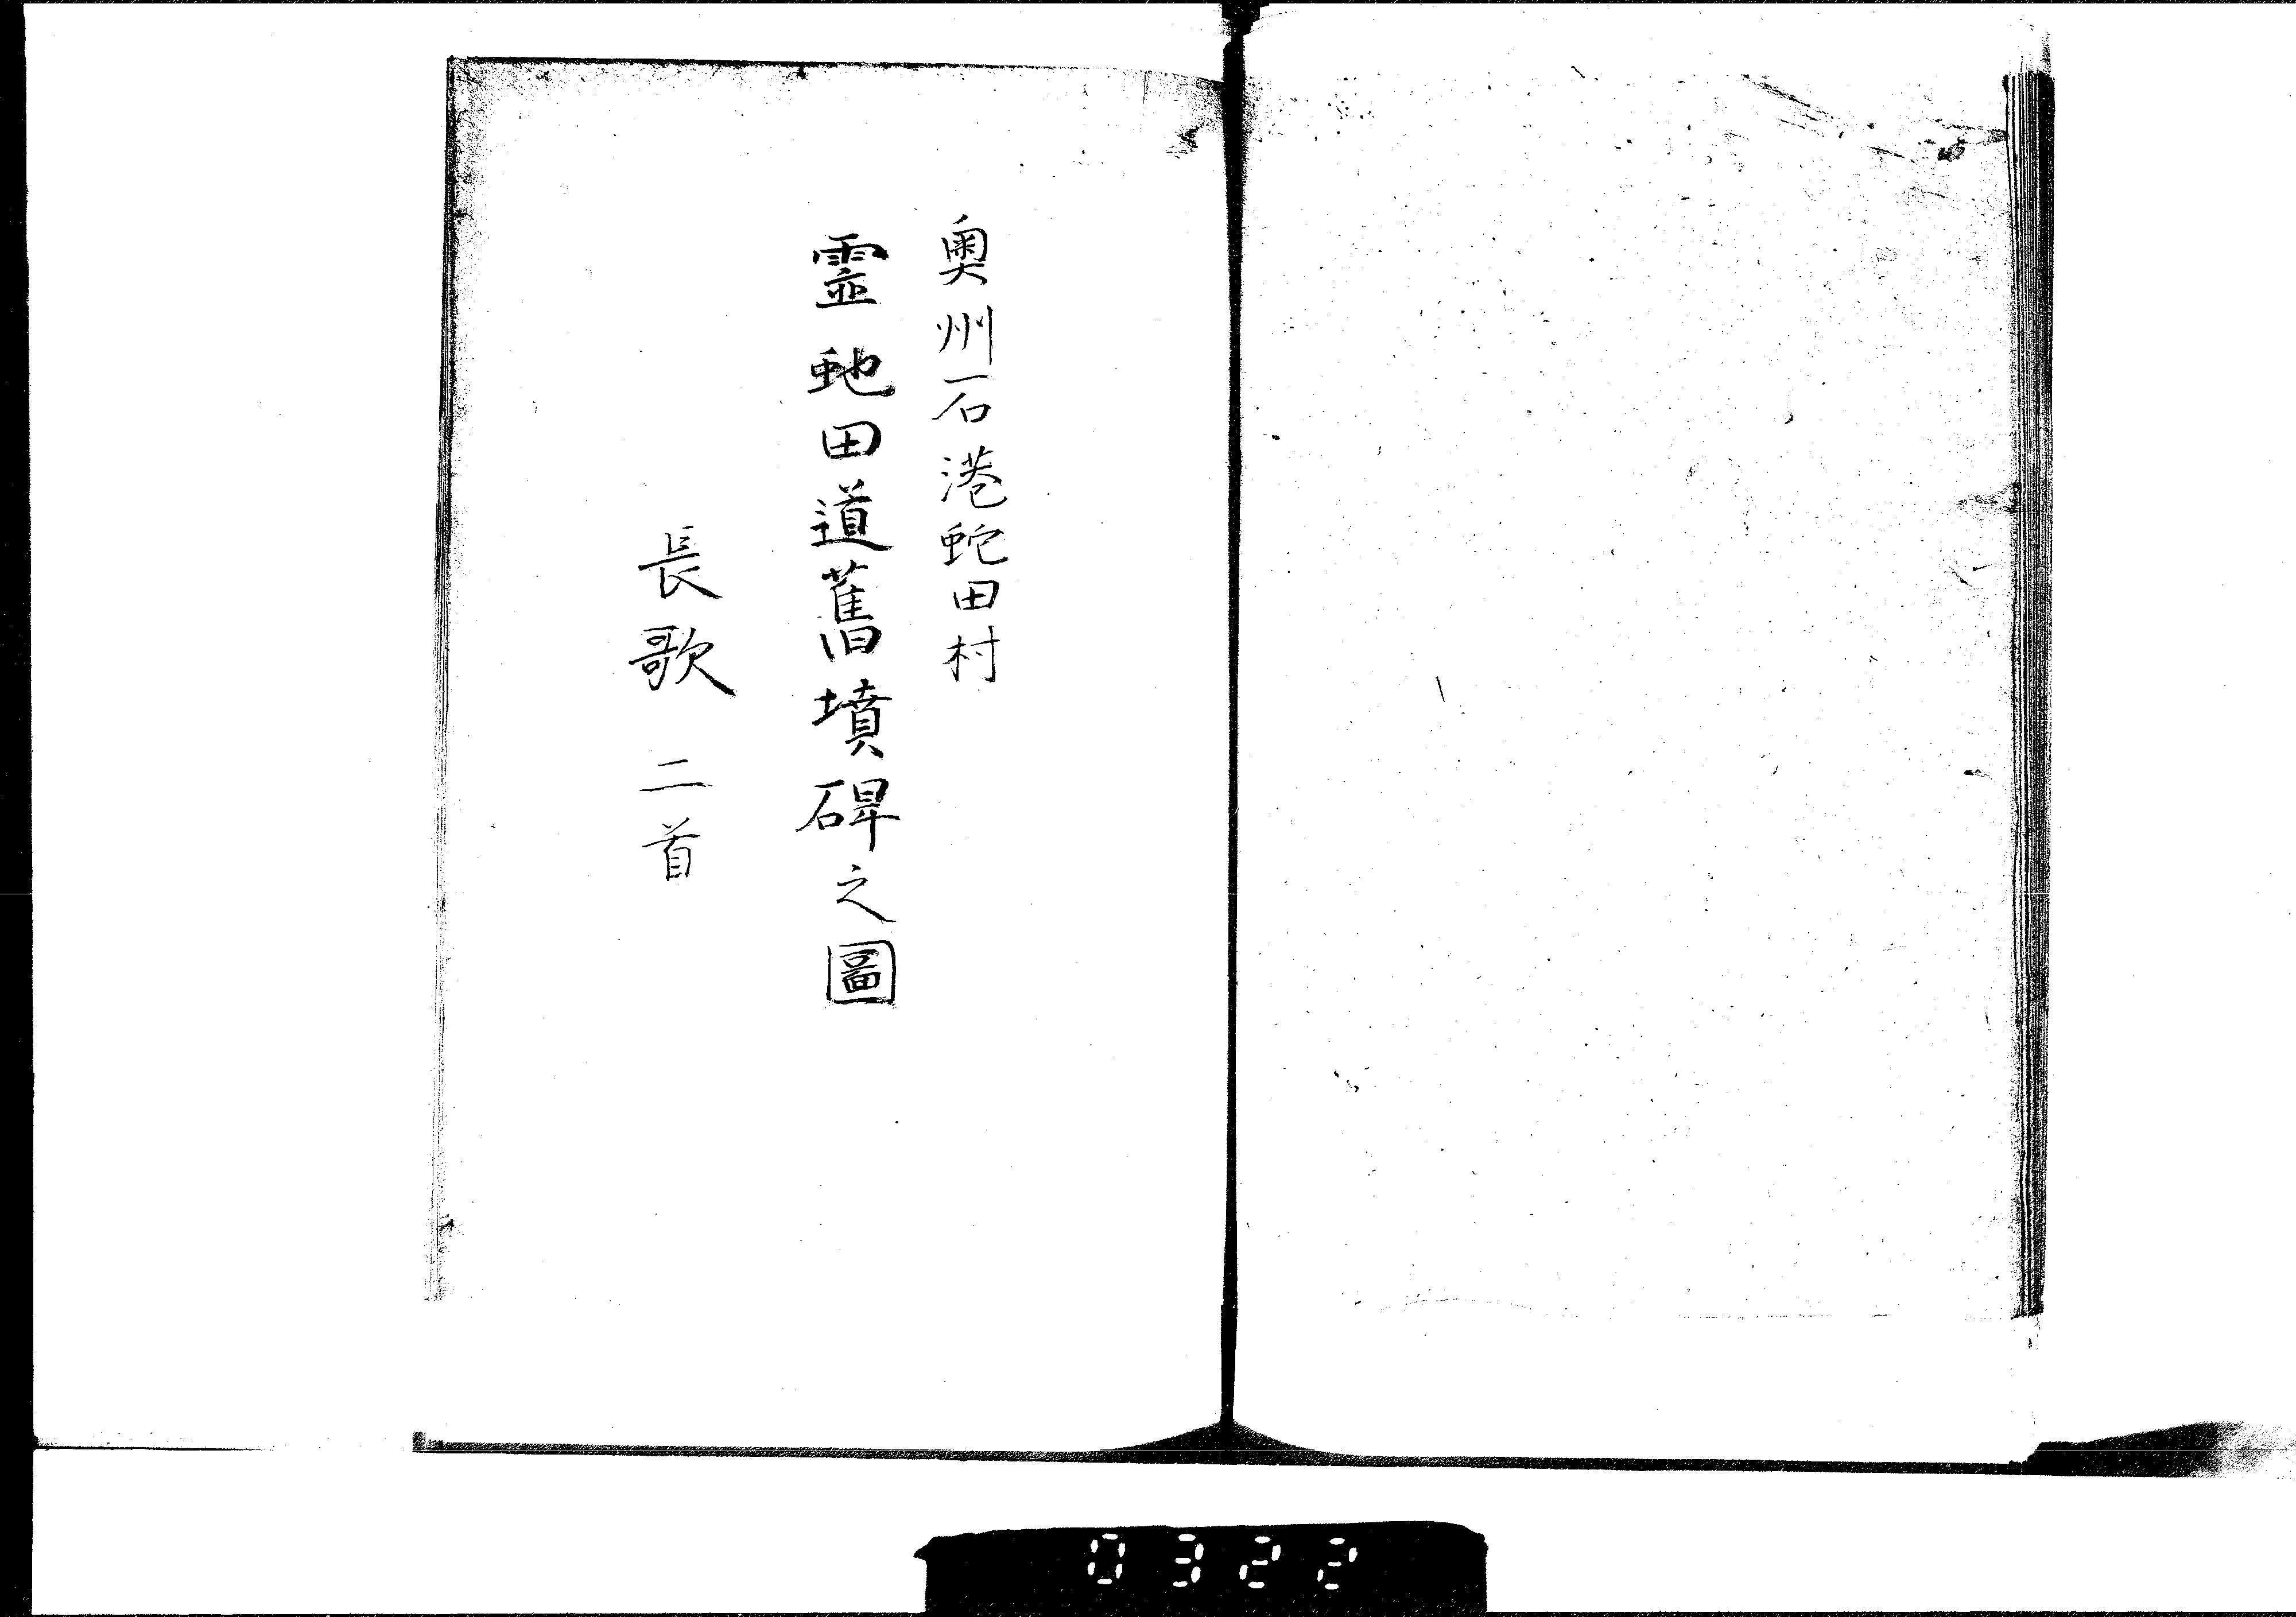 奥州石港蛇田村
霊虵田道舊墳碑之圖
長歌二首
0322